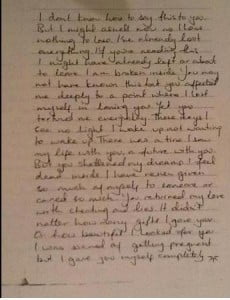 I don't know how to say this to you
But I might aswell now no I have
nothing to lose. I've already lost
everything. If you're reading this
I might have already left or about
to leave. I am broken inside. You may
not have known this but you affected
me deeply to a point where I lost
myself in loving you. Yet you
tortured me everyday. These days I
see no light I wake up not wanting
to wake up. There was a time I saw
my life with you, a future with you.
But you shattered my dreams. I feel
dead inside. I have never given
so much of myself to someone or
cared so much. You returned my love
with cheating and lies. It didn't
matter how many gifts I gave you.
Or how beautiful I looked for you.
I was scared of getting pregnant
but I gave you myself completely